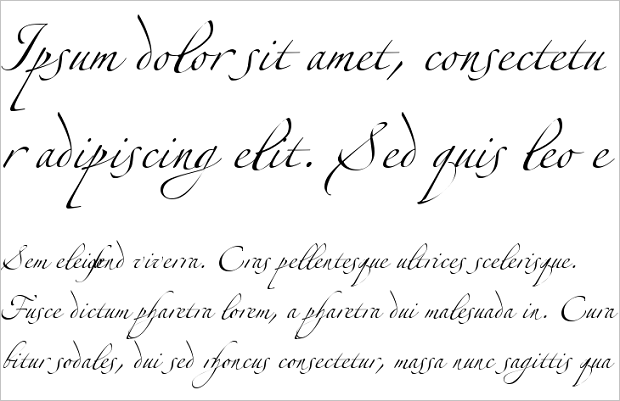 Ipsum dolor sit amet, consectetu
r adipiscing elit. Sed quis leo e
Sem eleifend viverra. Cras pellentesque ultrices scelerisque.
Fusce dictum pharetra lorem, a pharetra dui malesuada in. Cura
bitur sodales, dui sed rhoncus consectetur, massa nunc sagittis qua